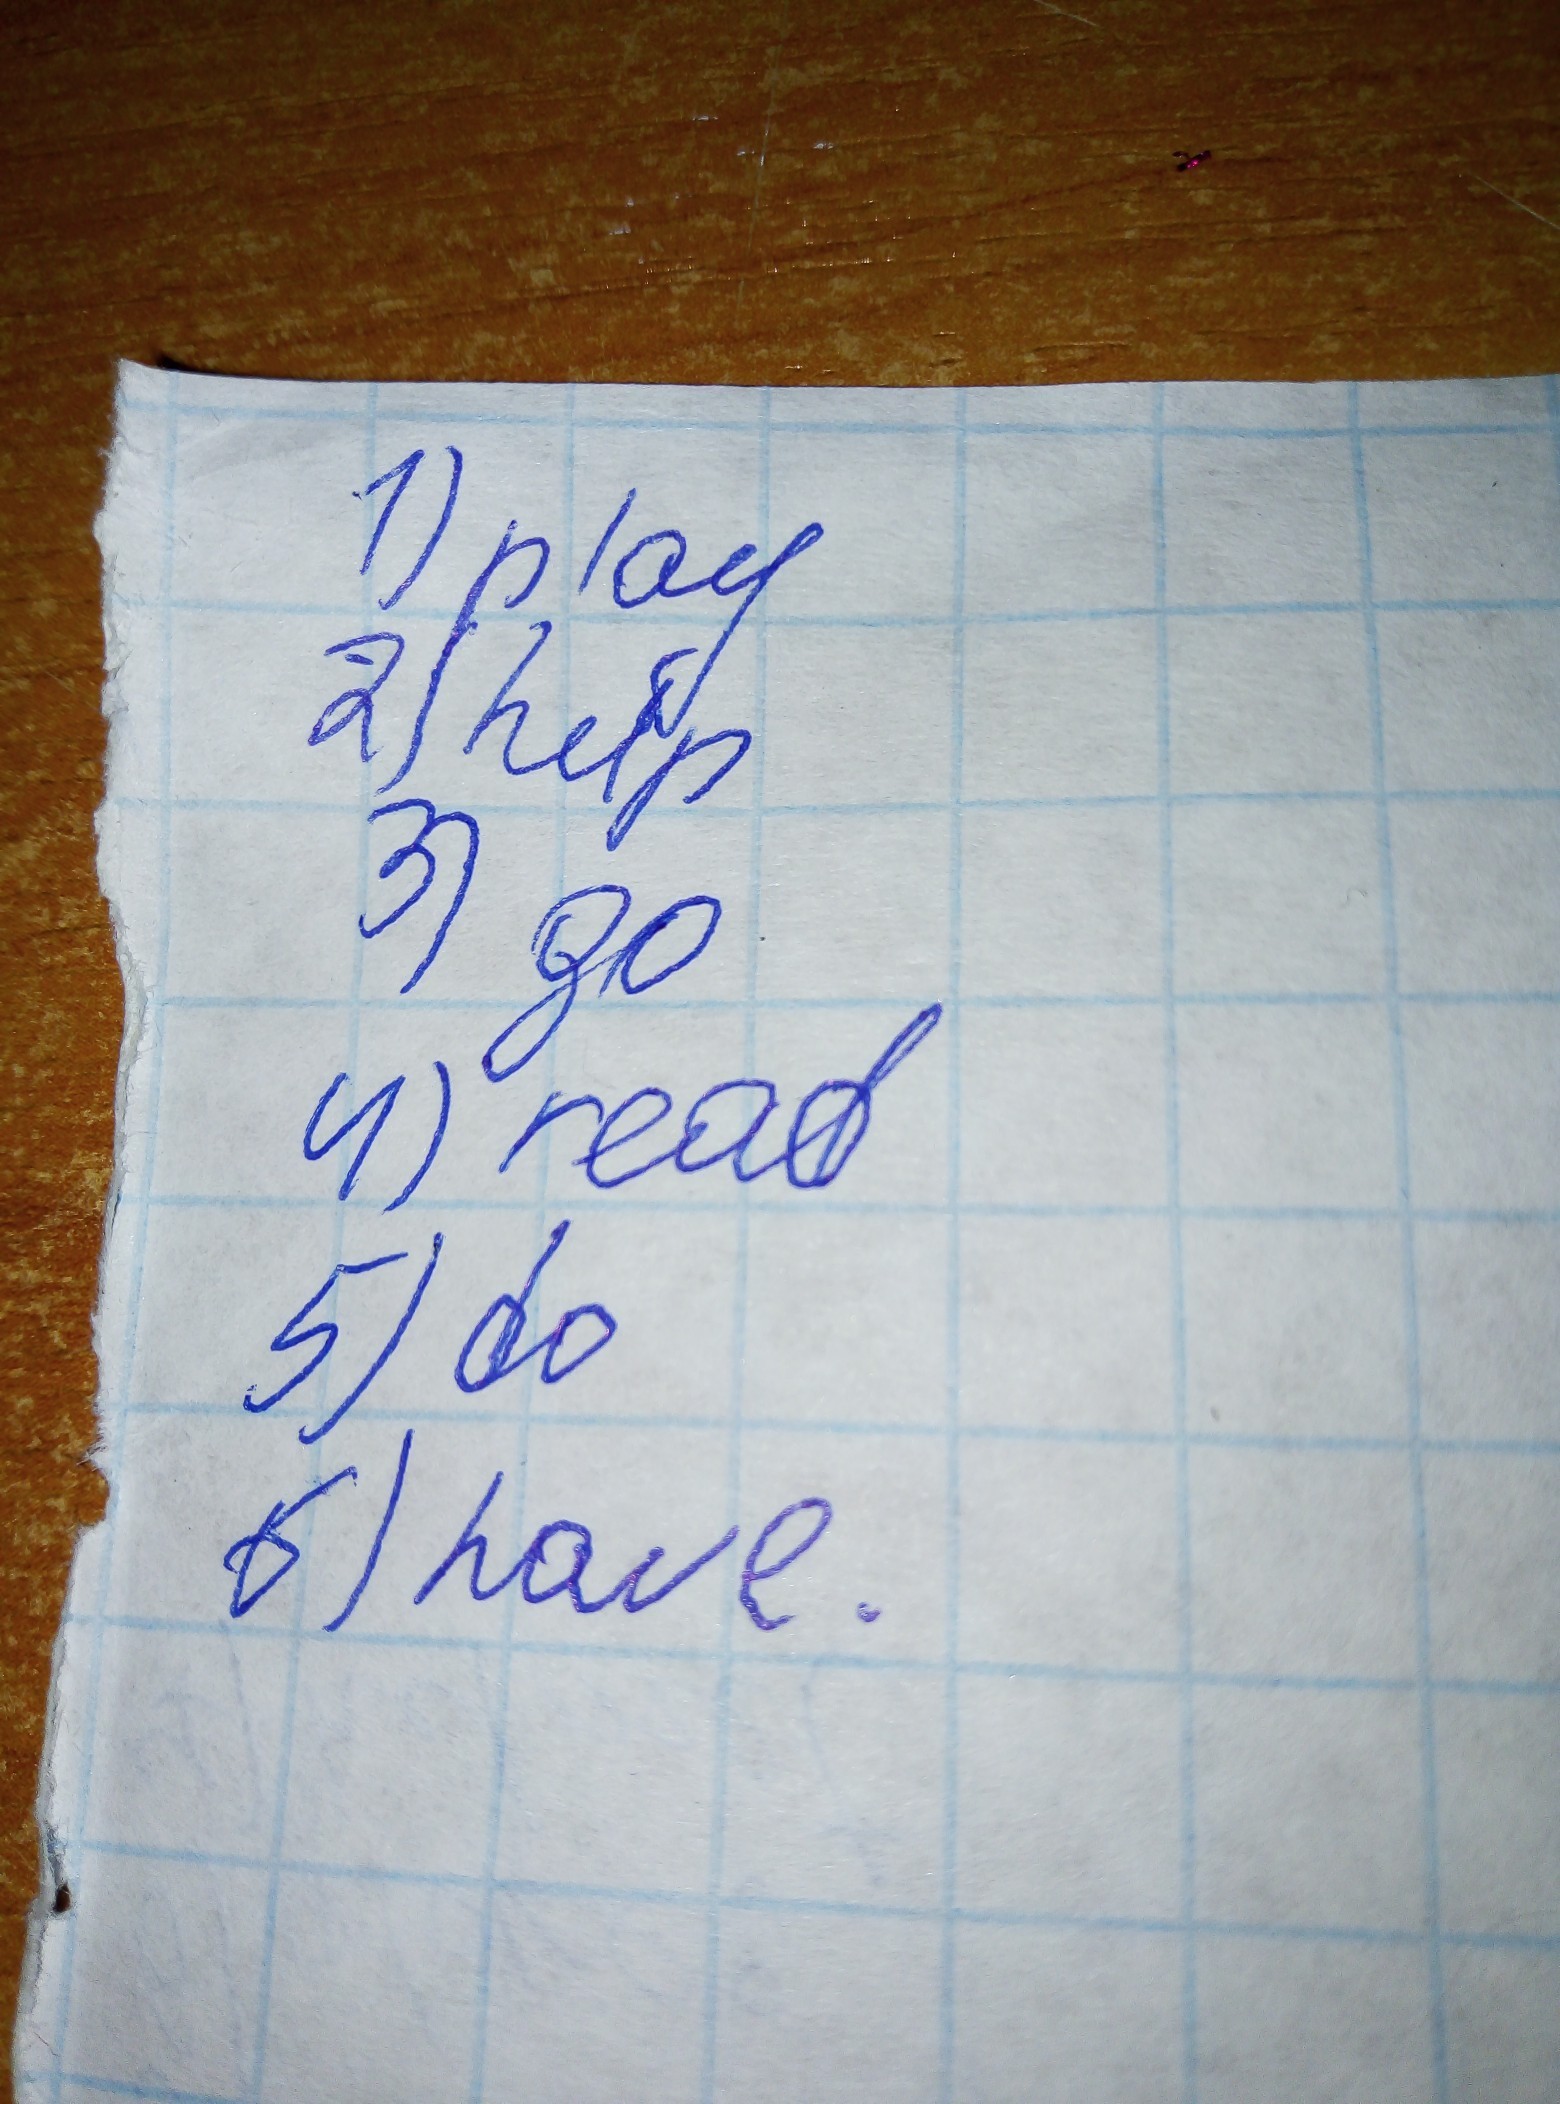 1) play
2) help
3) go
4) read
5) do
6) have.